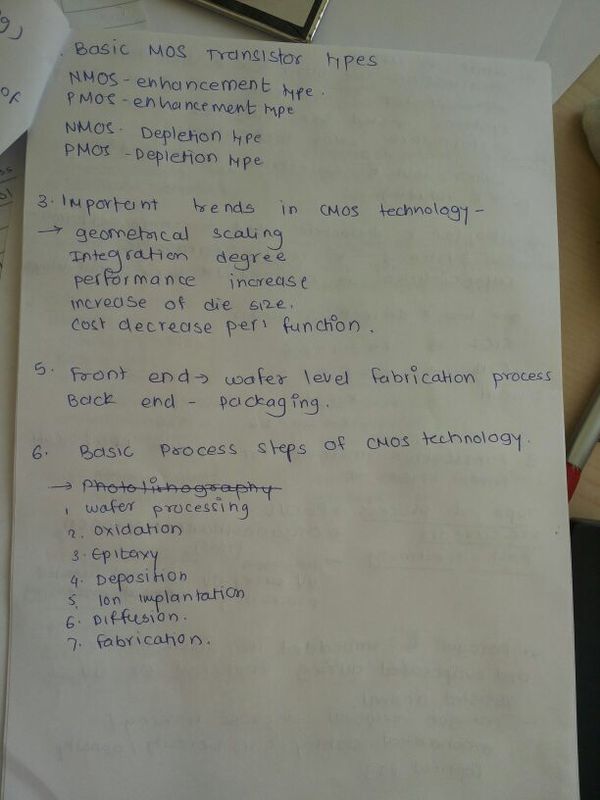 . Basic MOS Transistor types
NMOS - enhancement type.
PMOS - enhancement type
NMOS - Depletion type
PMOS - Depletion type
3. Important trends in CMOS technology -
→ geometrical scaling
Integration degree
performance increase
increase of die size.
cost decrease per function.
5. Front end → wafer level fabrication process
Back end - packaging.
6. Basic process steps of CMOS technology.
→ Photolithography
1 wafer processing
2. oxidation
3. Epitaxy
4. Deposition
5. Ion implantation
6. Diffusion.
7. fabrication.